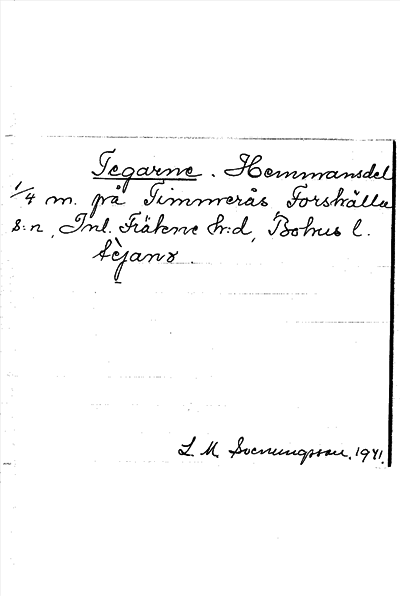 Tegarne. Hemmansdel
1/4 m. på Timmerås, Forshälla
s:n, Inl. Fräkne h:d, Bohus l.
tèjanɤ.
L. M. Svenungsson. 1941.